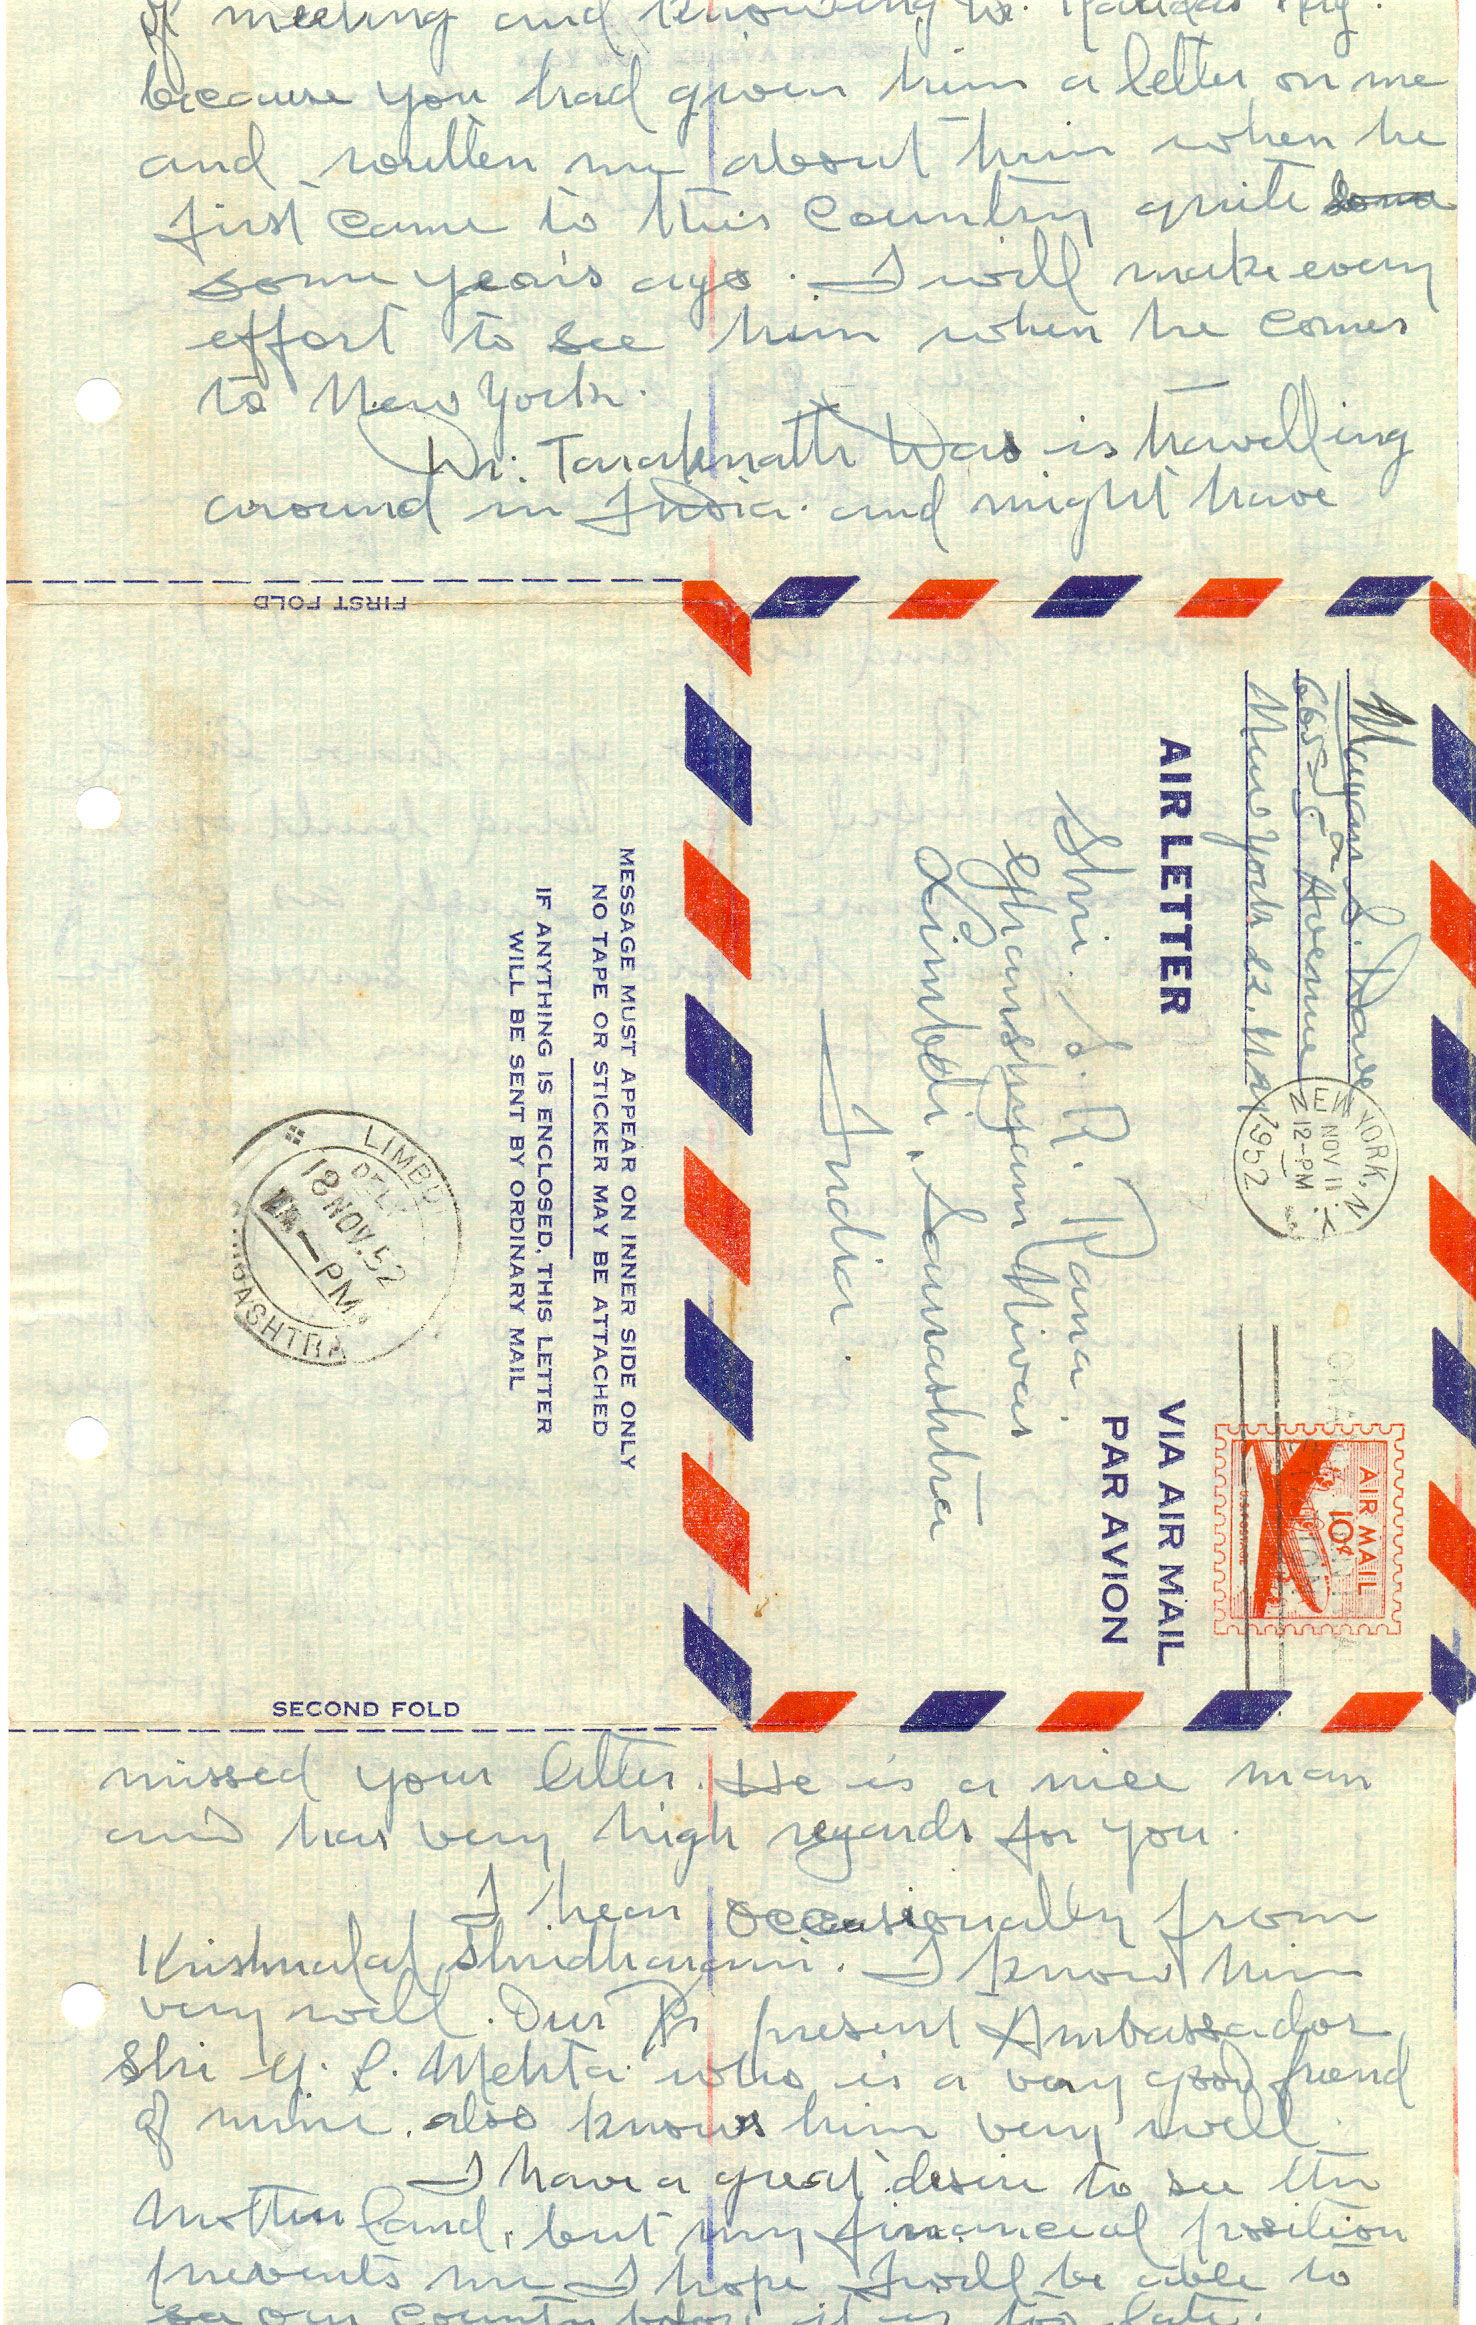 of meeting and knowing Dr. Kalidas Nag.
because you had given him a letter on me
and written me about him when he
first came to this country quite some
some years ago. I will make every
effort to see him when he comes
to New York.
Dr. Taraknath Das is travelling
around in India. and might have
FIRST FOLD
Magan S. Dave
665 5th Avenue
New York 22. N.Y.
NEW YORK, N.Y.
NOV 11
12-PM
1952
AIR LETTER
VIA AIR MAIL
PAR AVION
AIR MAIL
10¢
U.S. POSTAGE
Shri. S. R. Rana.
Ghanshyam Nivas
Limbdi, Saurashtra
India.
MESSAGE MUST APPEAR ON INNER SIDE ONLY
NO TAPE OR STICKER MAY BE ATTACHED
IF ANYTHING IS ENCLOSED, THIS LETTER
WILL BE SENT BY ORDINARY MAIL
LIMBDI
DELY
18 NOV. 52
PM
SAURASHTRA
SECOND FOLD
missed your letter. He is a nice man
and has very high regards for you.
I hear occasionally from
Krishnalal Shridharani. I know him
very well. Our Pr present Ambassador
Shri G. L. Mehta who is a very good friend
of mine, also knows him very well.
I have a great desire to see the
Motherland, but my financial position
prevents me. I hope I will be able to
see our country before it is too late.